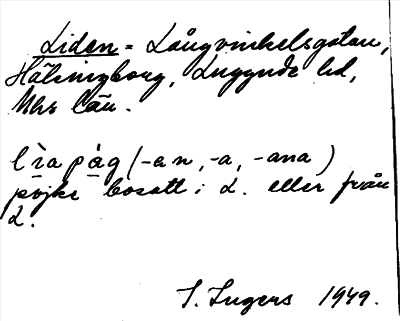 Liden = Långvinkelsgatan,
Hälsingborg, Luggude hd,
Mhs län.
lìa pág (-an, -a, -ana)
pojke bosatt i L. eller från
L.
I. Ingers 1949.